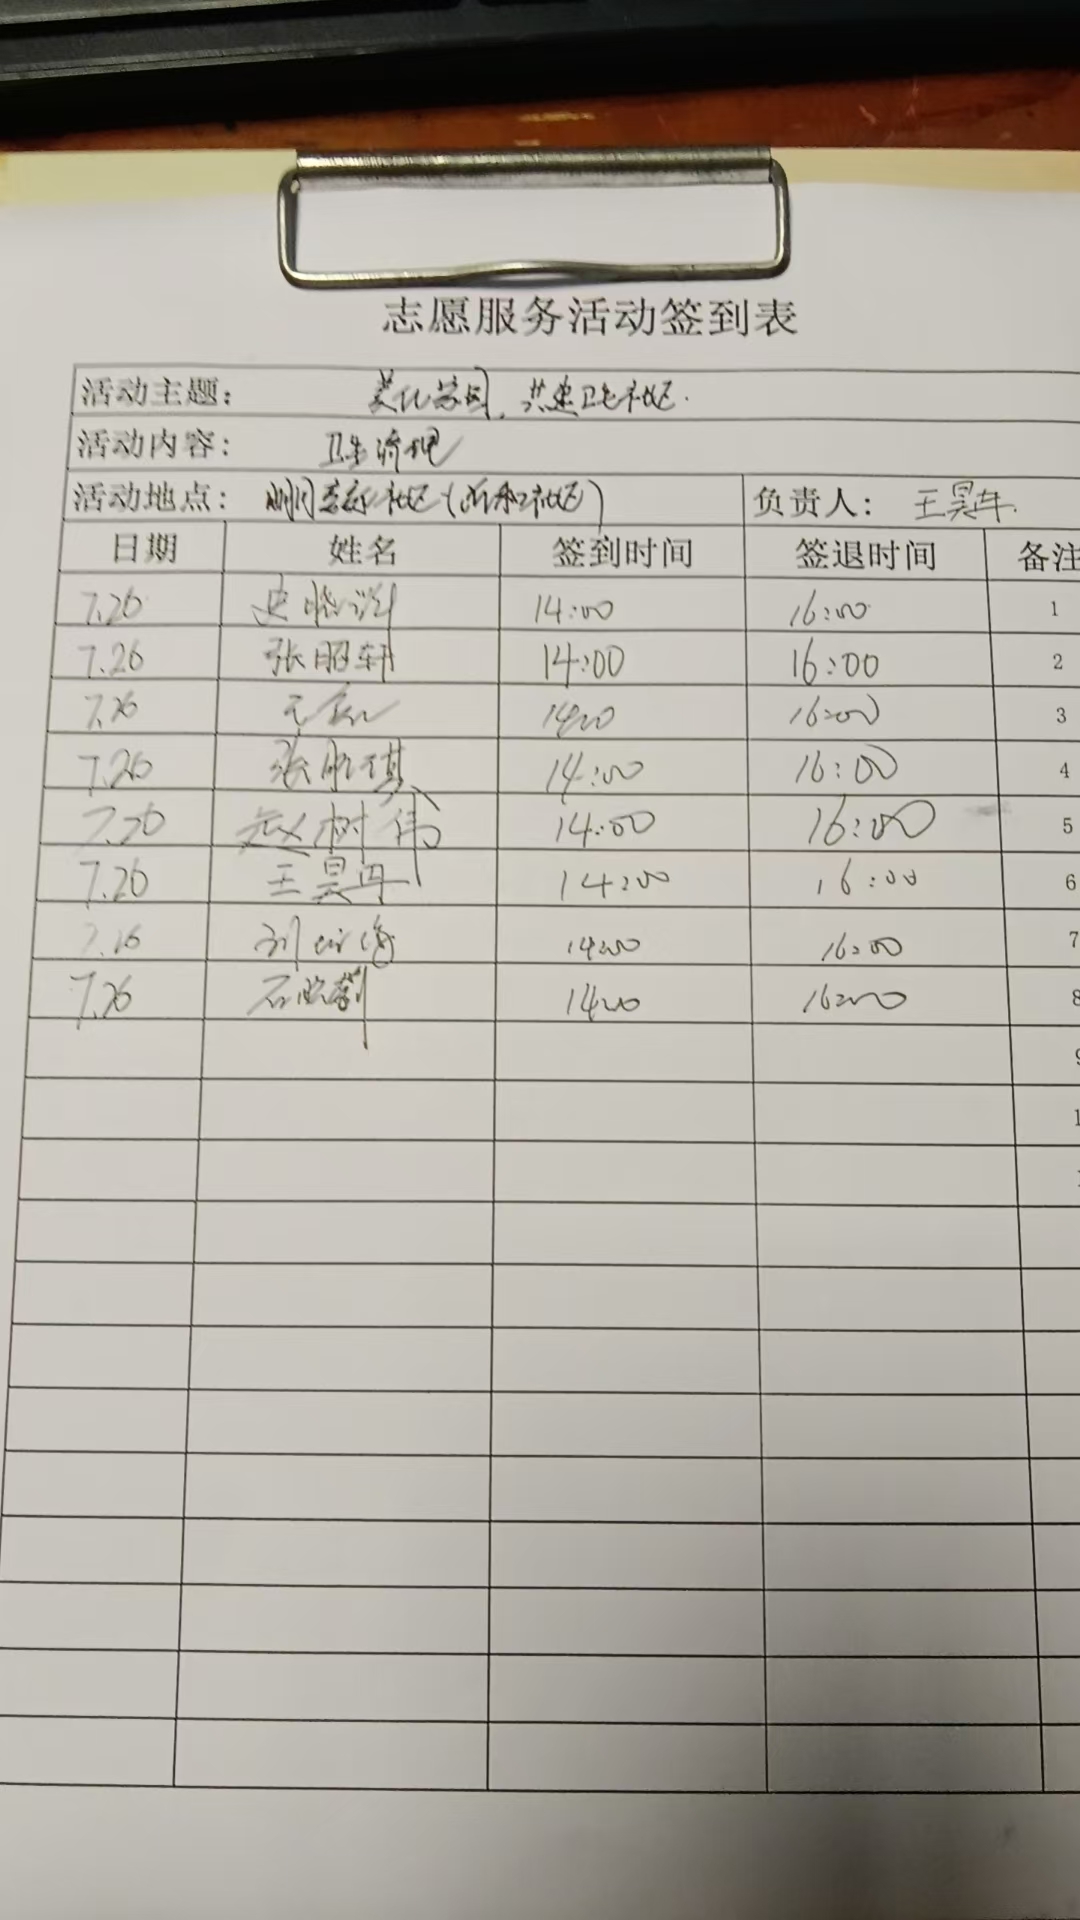 志愿服务活动签到表
活动主题： 美化家园，共建卫生社区.
活动内容： 卫生清理
活动地点： 社区（ 社区） 负责人： 王昊
日期 姓名 签到时间 签退时间 备注
7.26 史晓 14:00 16:00 1
7.26 张昭轩 14:00 16:00 2
7.26 14:00 16:00 3
7.26 张 琪 14:00 16:00 4
7.26 赵树伟 14:00 16:00 5
7.26 王昊 14:00 16:00 6
7.26 刘 14:00 16:00 7
7.26 石 14:00 16:00 8
9
1
1